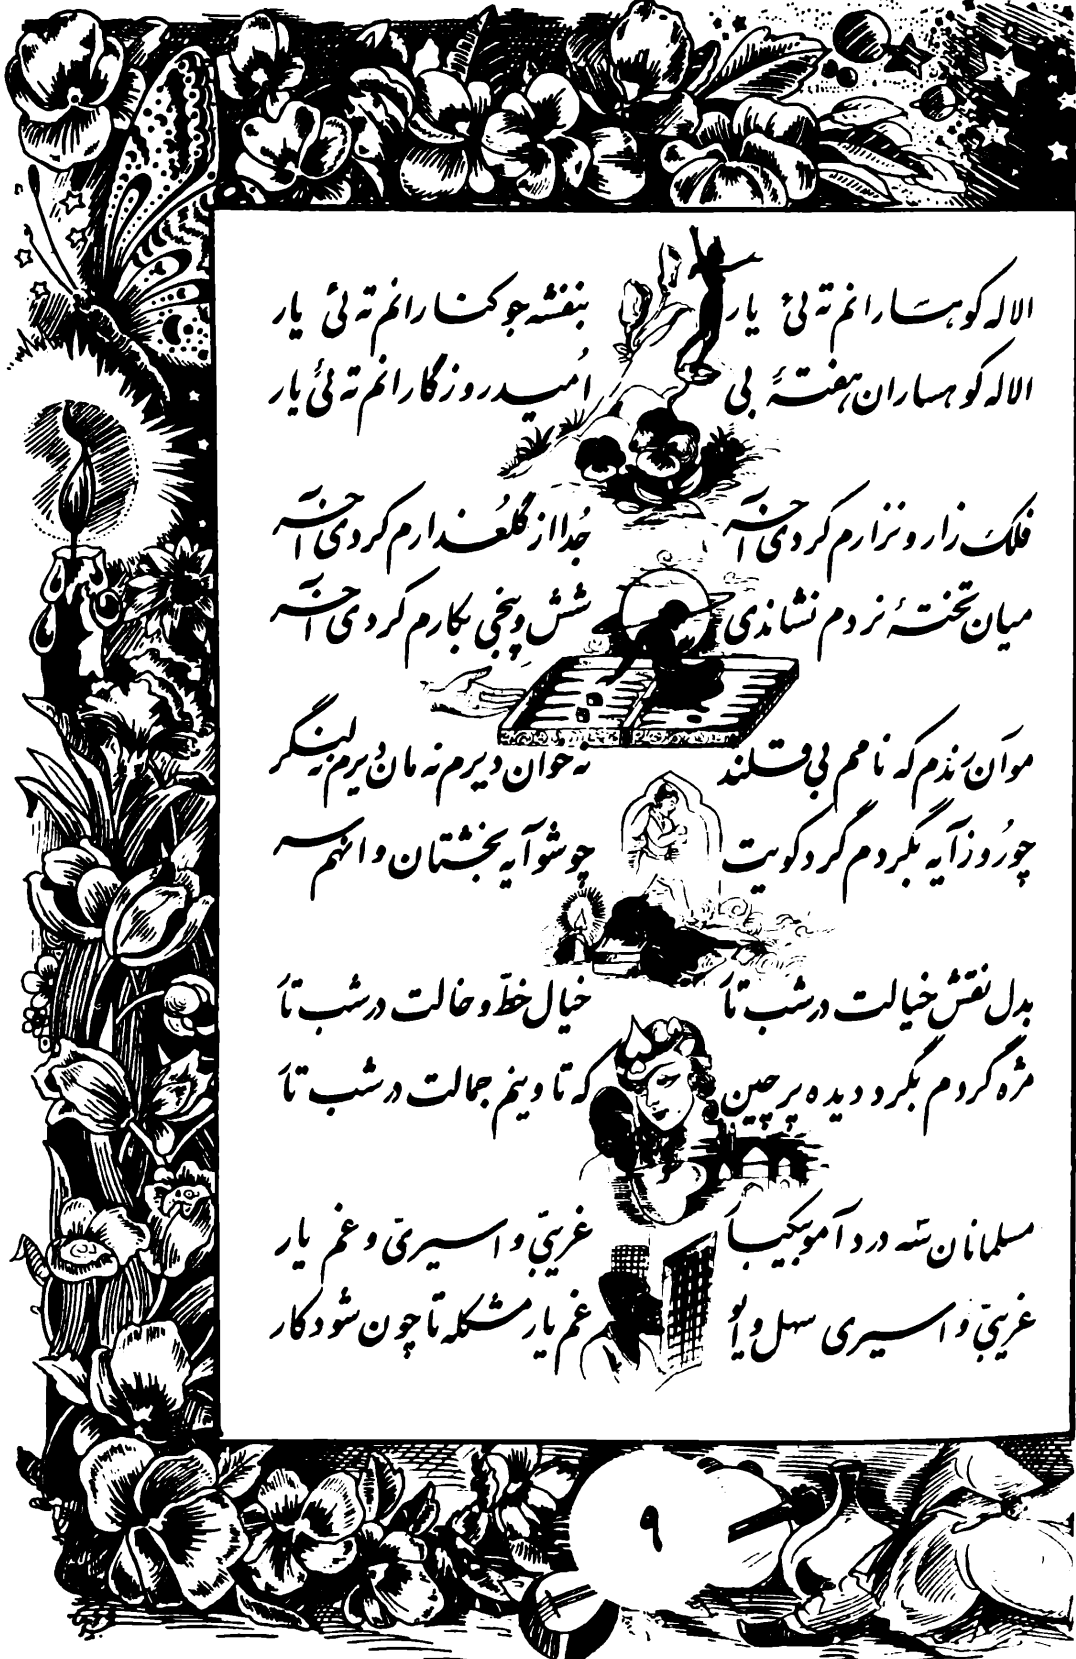 الاله کوهسارانم ته ئی یار بنفشه جوکنارانم ته ئی یار
الاله کوهساران هفتهٔ بی اُمید روزگارانم ته ئی یار
فلک زار و نزارم کردی آخر جُدا از گلعُذارم کردی آخر
میان تختهٔ نردم نشاندی شش و پنجی بکارم کردی آخر
مو آن رندم که نامم بی قلندر نه خوان دیرم نه مان دیرم نه لنگر
چو رُوز آیه بگردم گرد کویت چو شو آیه بخشتان وانهم سر
بدل نقش خیالت در شب تار خیال خطّ و خالت در شب تار
مژه کردم بگرد دیده پرچین که تا وینم جمالت در شب تار
مسلمانان سه درد آمو بیکبار غریبّی و اسیریّ و غم یار
غریبّی و اسیری سهل و ایو غم یار مشکله تا چون شود کار
۹